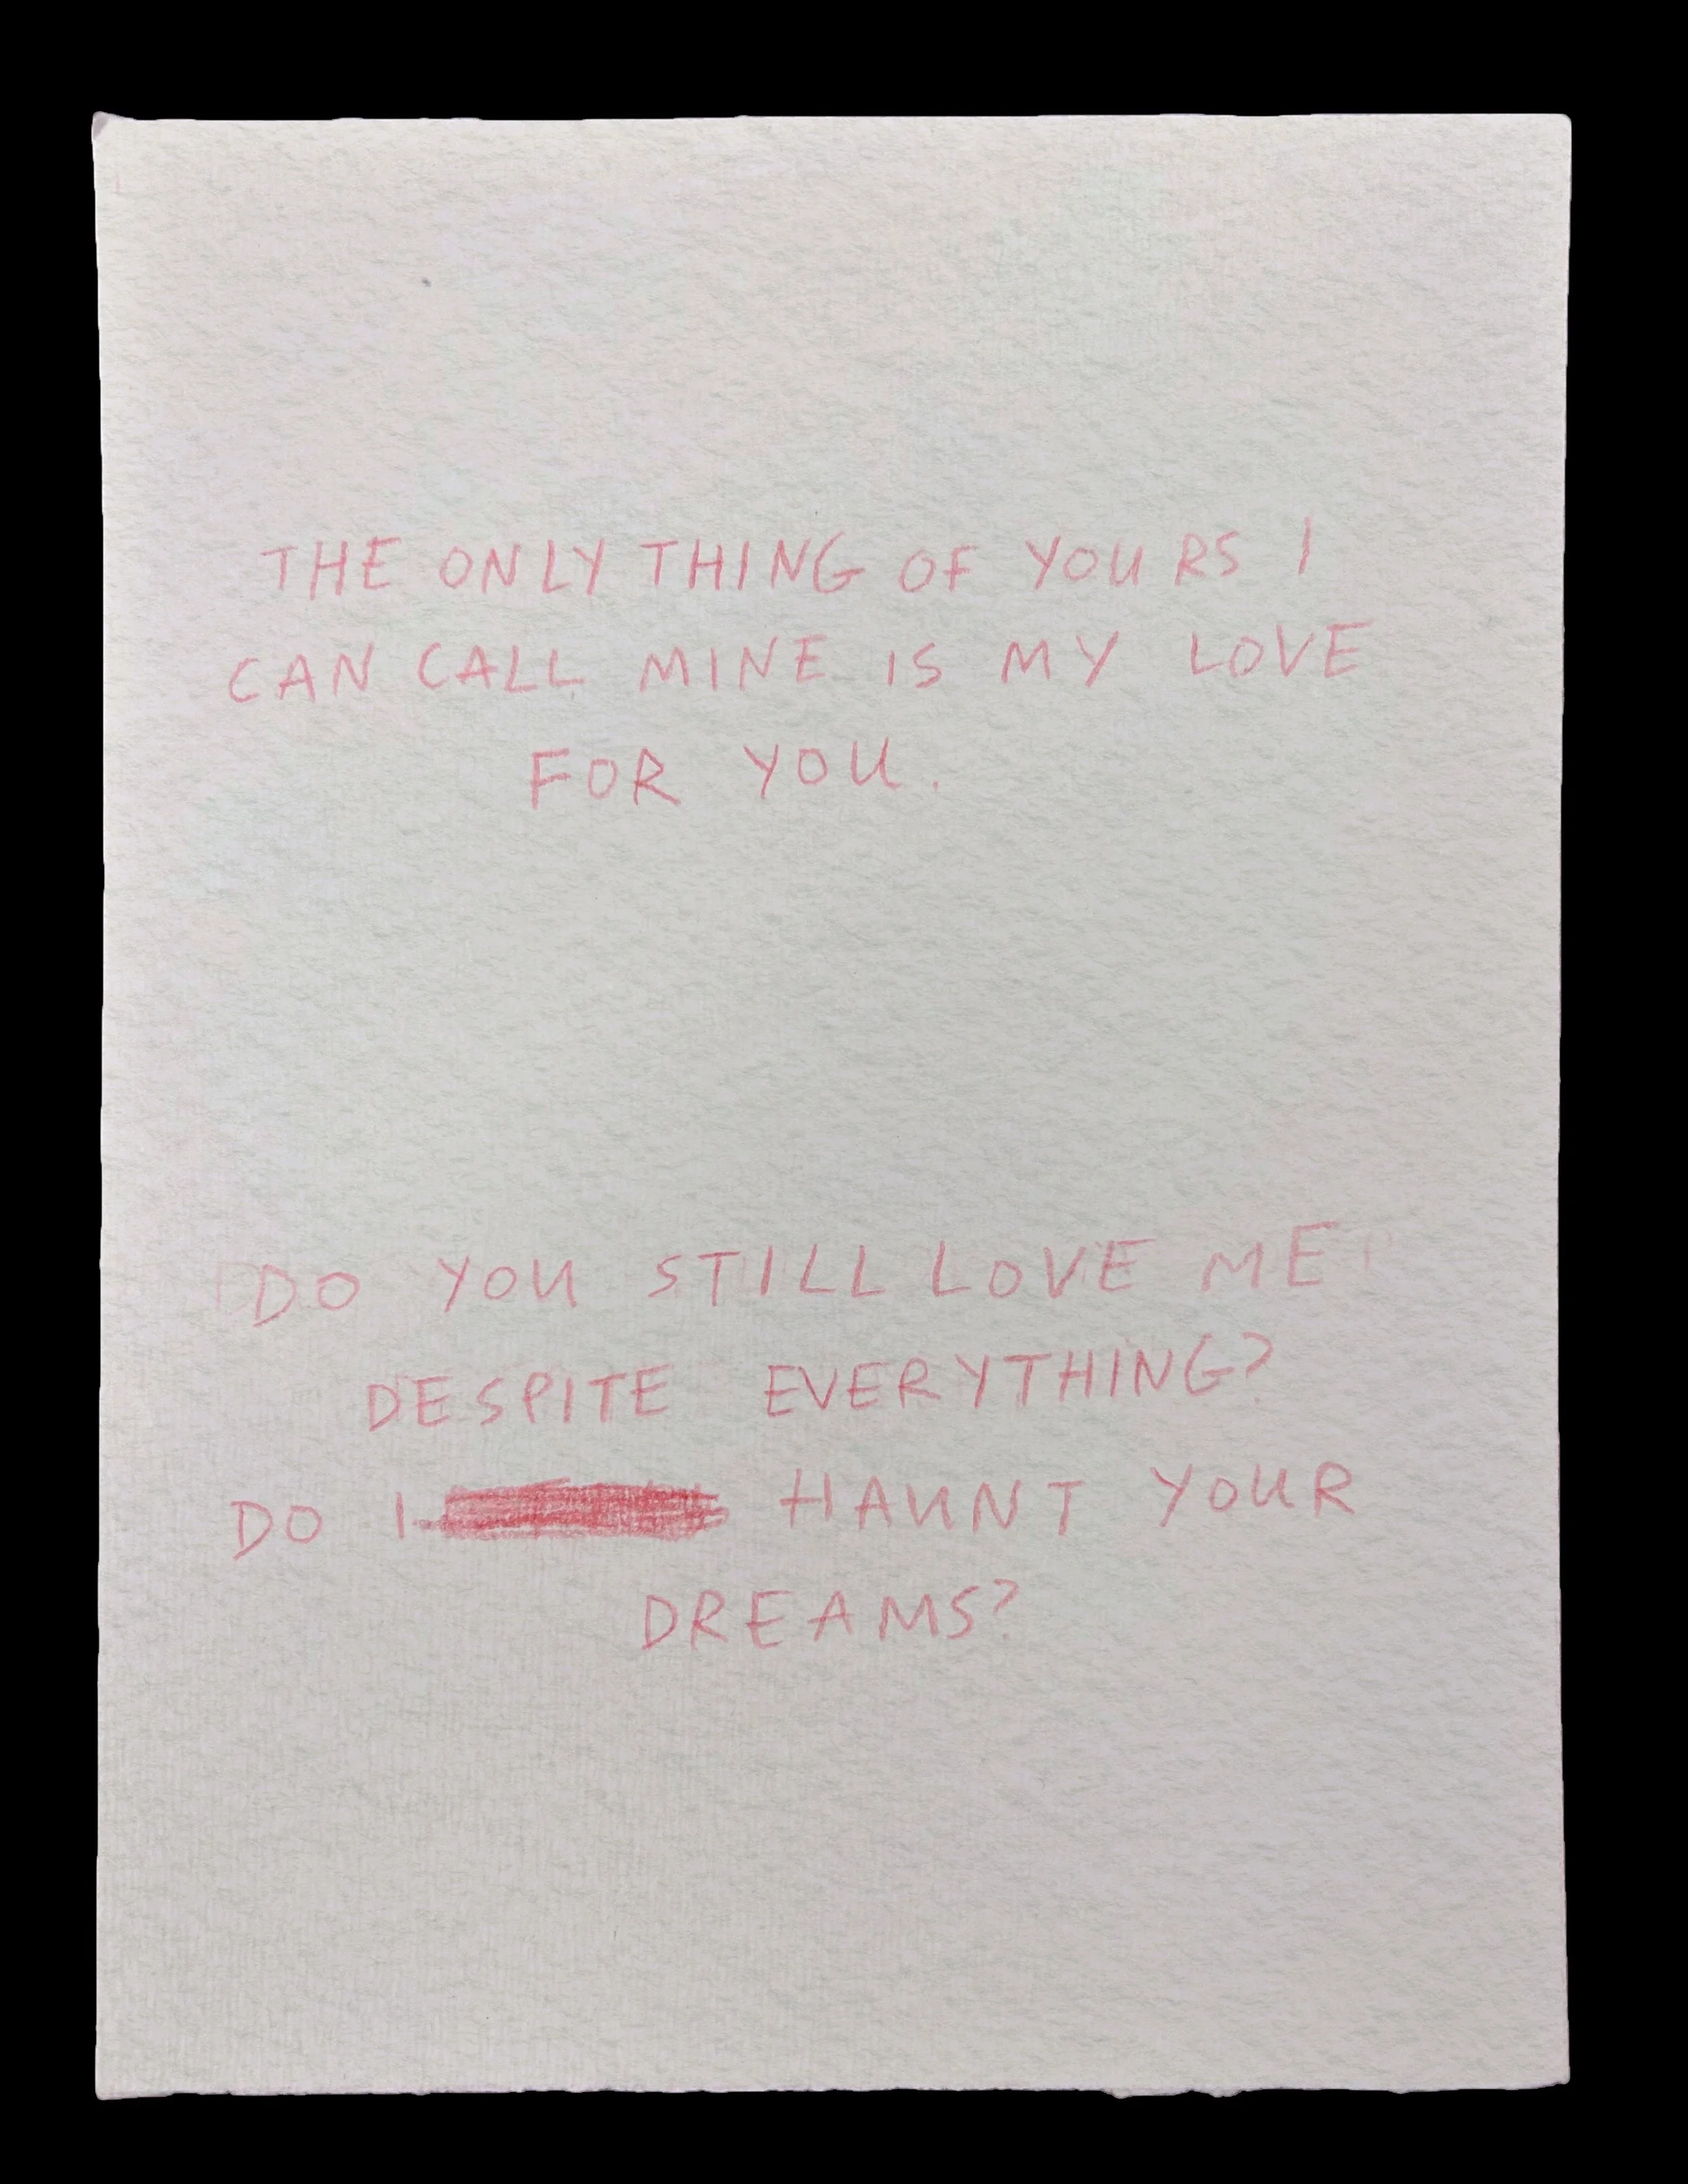 THE ONLY THING OF YOURS I
CAN CALL MINE IS MY LOVE
FOR YOU.
DO YOU STILL LOVE ME
DESPITE EVERYTHING?
DO I HAUNT YOUR
DREAMS?